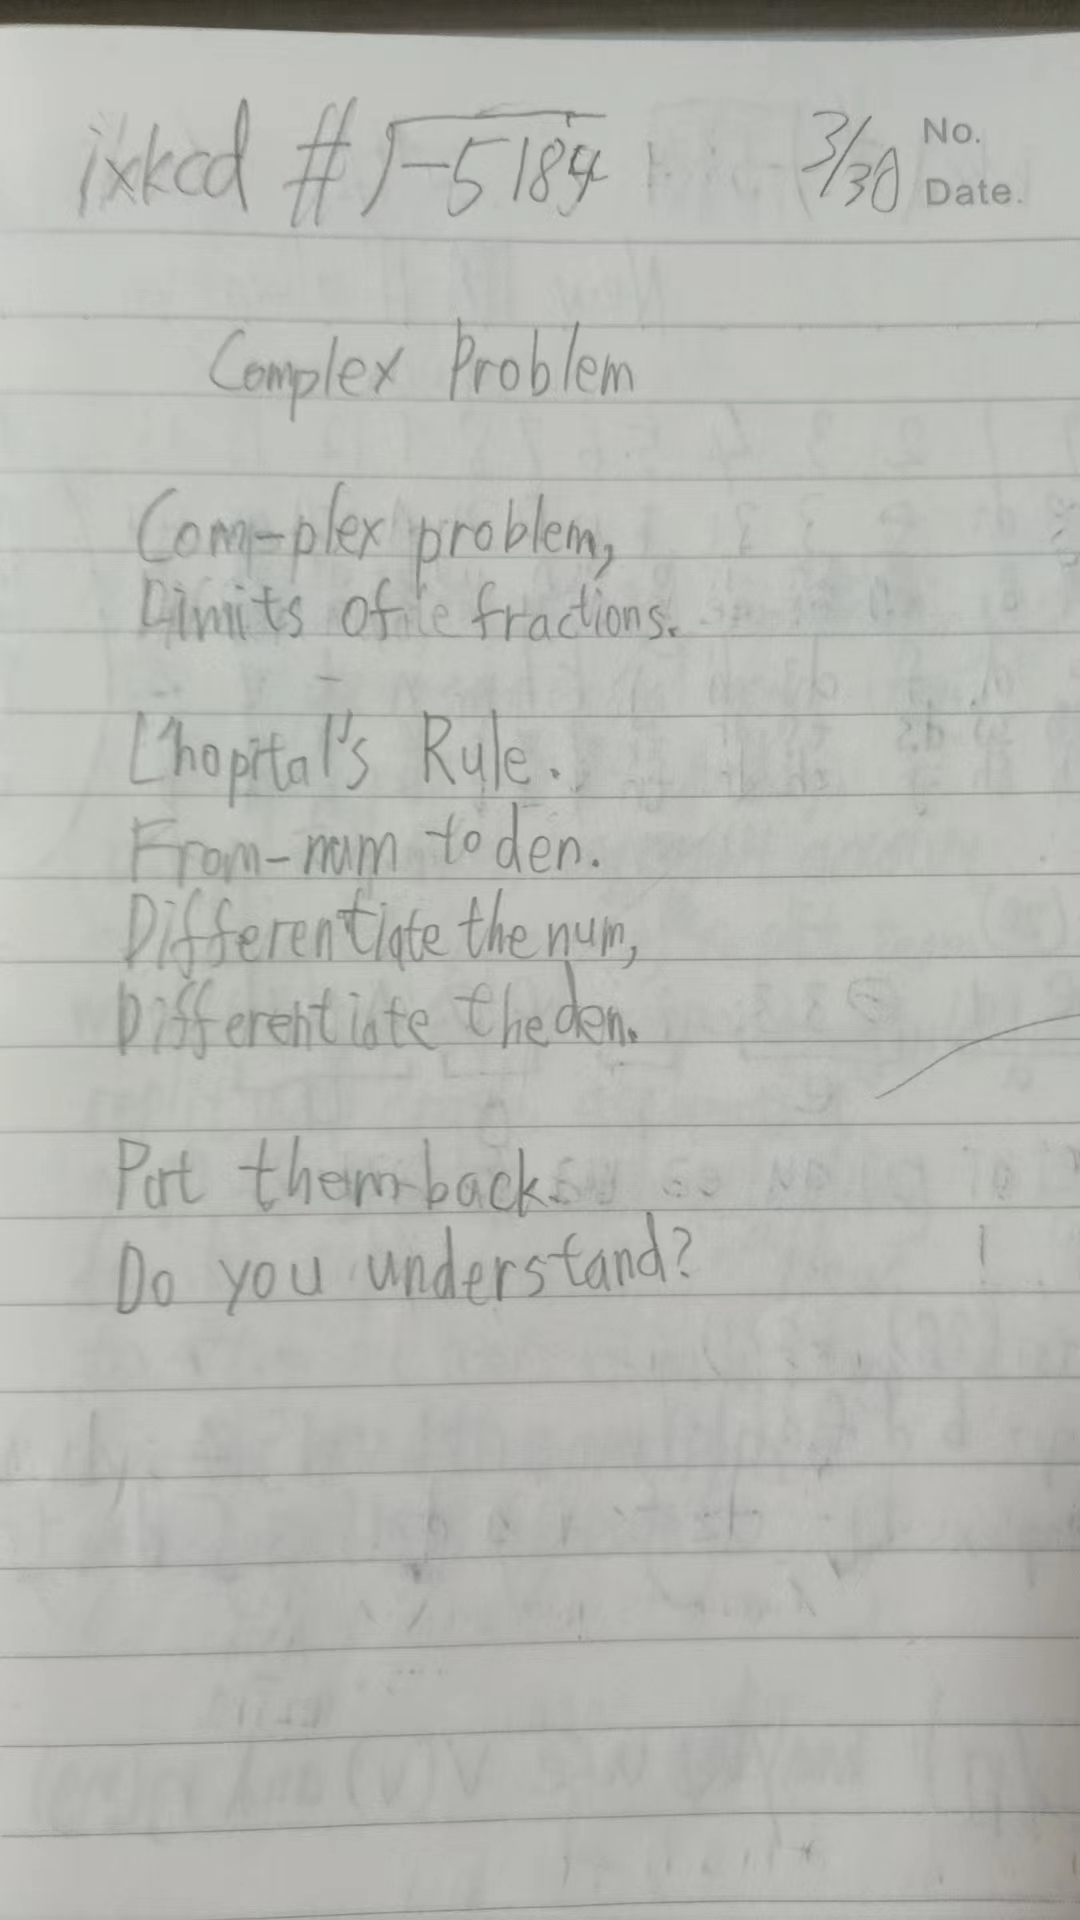 ixkcd #√-5184 3/30 No.
Date.
Complex Problem
Com-plex problem,
Limits of fractions.
L'hopital's Rule.
From-num to den.
Differentiate the num,
Differentiate the den.
Put them back.
Do you understand?